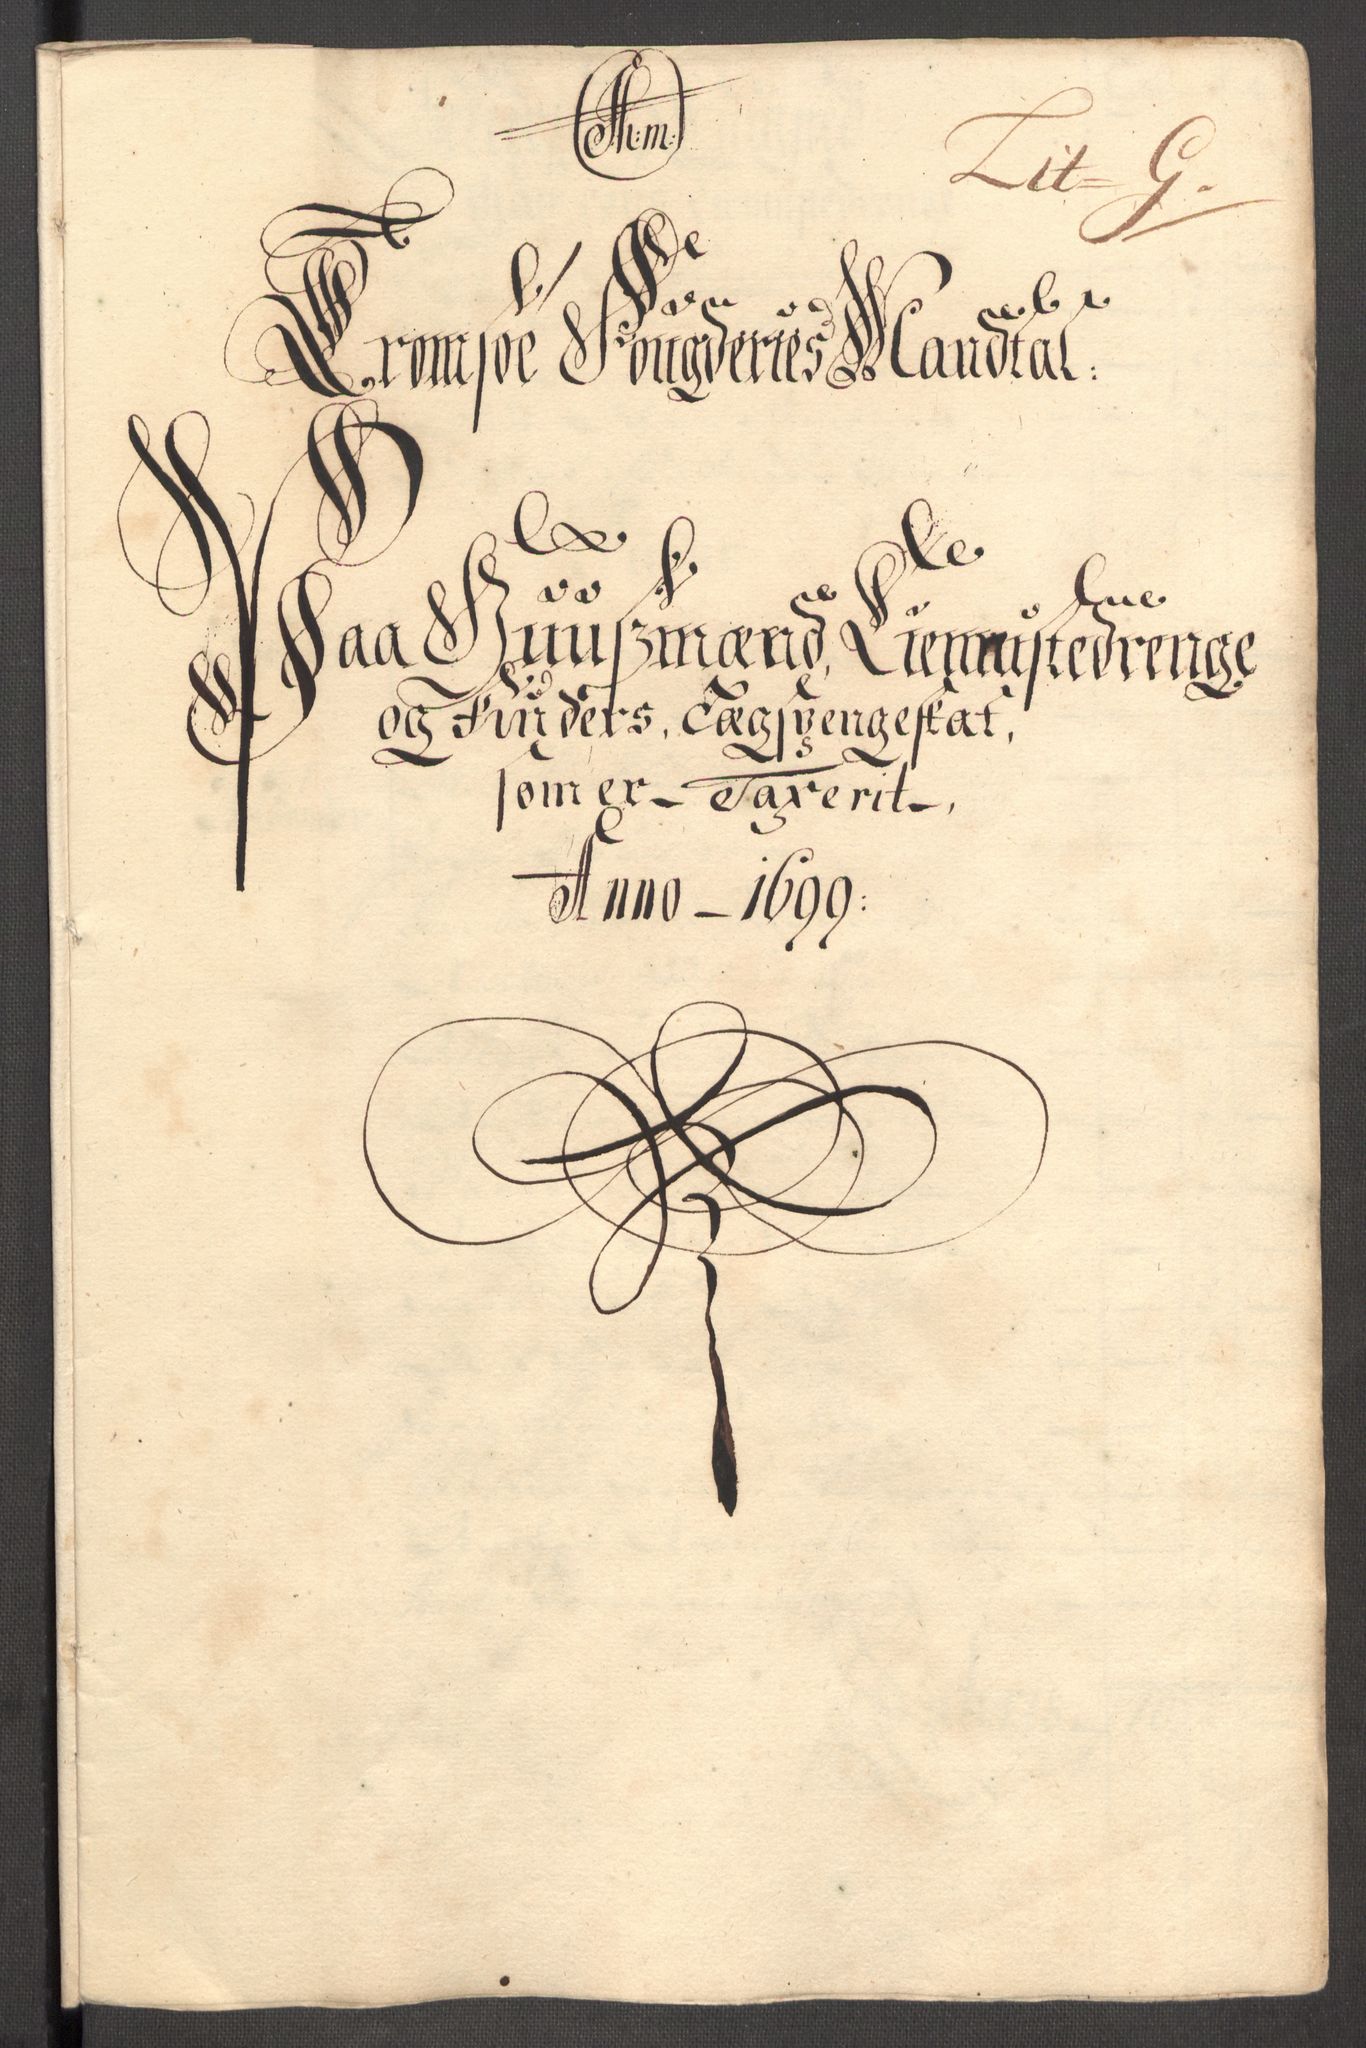 Lit= G.
Tromsöe Fougderies Mandtal:
Paa Huuszmænd, Tiennistedrenge
og Finders, Lægsvengeskat,
som er Taxerit,
Anno 1699: